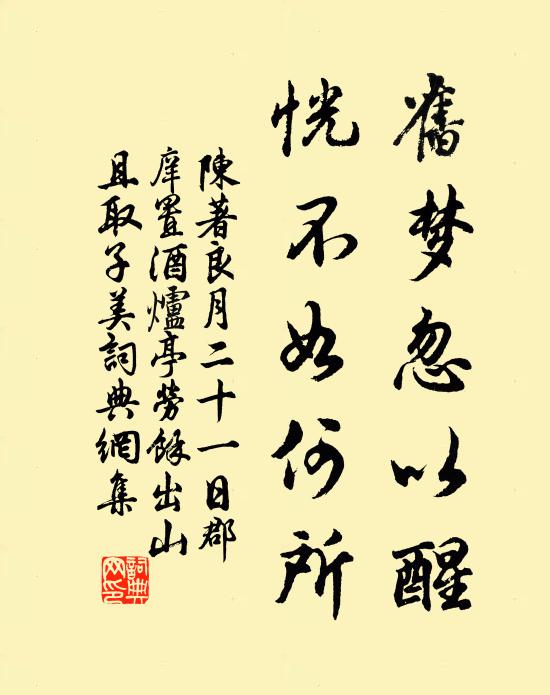 舊梦忽以醒
恍不如何所
陳著良月二十一日郡
庠置酒爐亭勞餘出山
且取子美詞典網集
詞典
网印